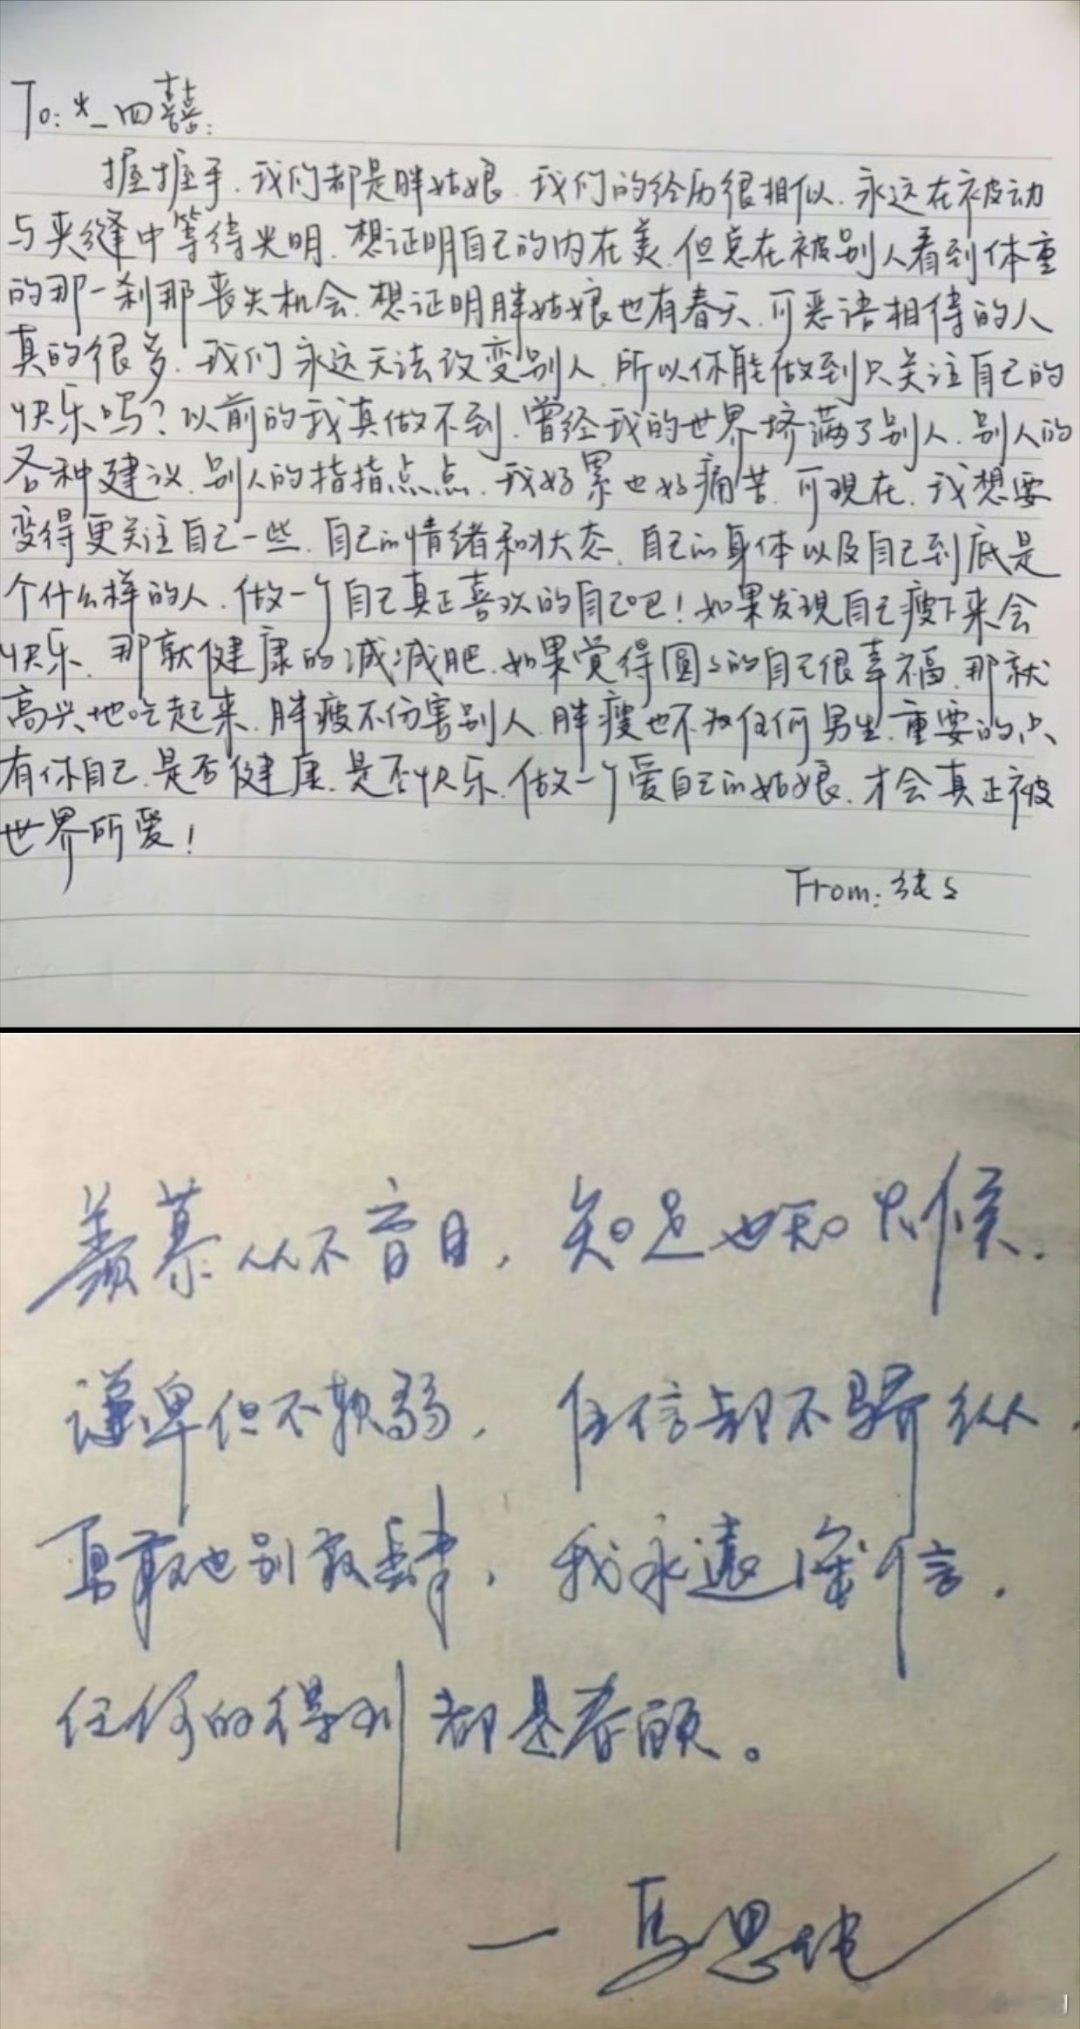 To:*_四囍:
握握手.我们都是胖姑娘.我们的经历很相似.永远在被动
与夹缝中等待光明.想证明自己的内在美.但总在被别人看到体重
的那一刹那丧失机会.想证明胖姑娘也有春天.可恶语相待的人
真的很多.我们永远无法改变别人.所以你能做到只关注自己的
快乐吗?以前的我真做不到.曾经我的世界挤满了别人.别人的
各种建议.别人的指指点点.我好累也好痛苦.可现在.我想要
变得更关注自己一些.自己的情绪和状态.自己的身体以及自己到底是
个什么样的人.做一个自己真正喜欢的自己吧!如果发现自己瘦下来会
快乐.那就健康的减减肥.如果觉得圆ㄑ的自己很幸福.那就
高兴地吃起来.胖瘦不伤害别人.胖瘦也不为任何男生.重要的只
有你自己.是否健康.是否快乐.做一个爱自己的姑娘.才会真正被
世界所爱!
From:纯ㄑ
羡慕从不盲目,知足也知火候.
谦卑但不软弱,任信却不骄纵,
勇敢也别放肆,我永遠深信.
任何的得到都是眷顾。
一马思纯